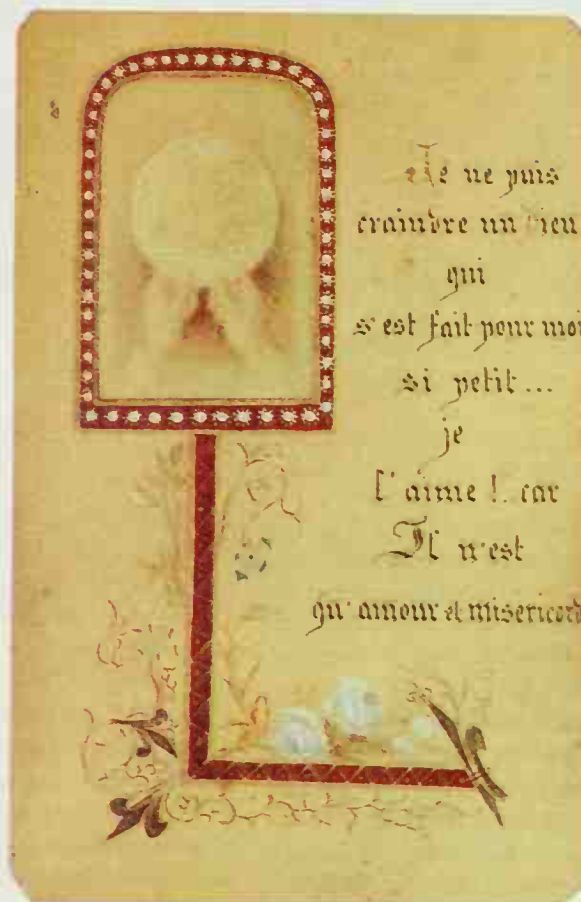 Je ne puis
craindre un Dieu
qui
s'est fait pour moi
si petit...
je
l'aime !. car
Il n'est
qu'amour et misericord